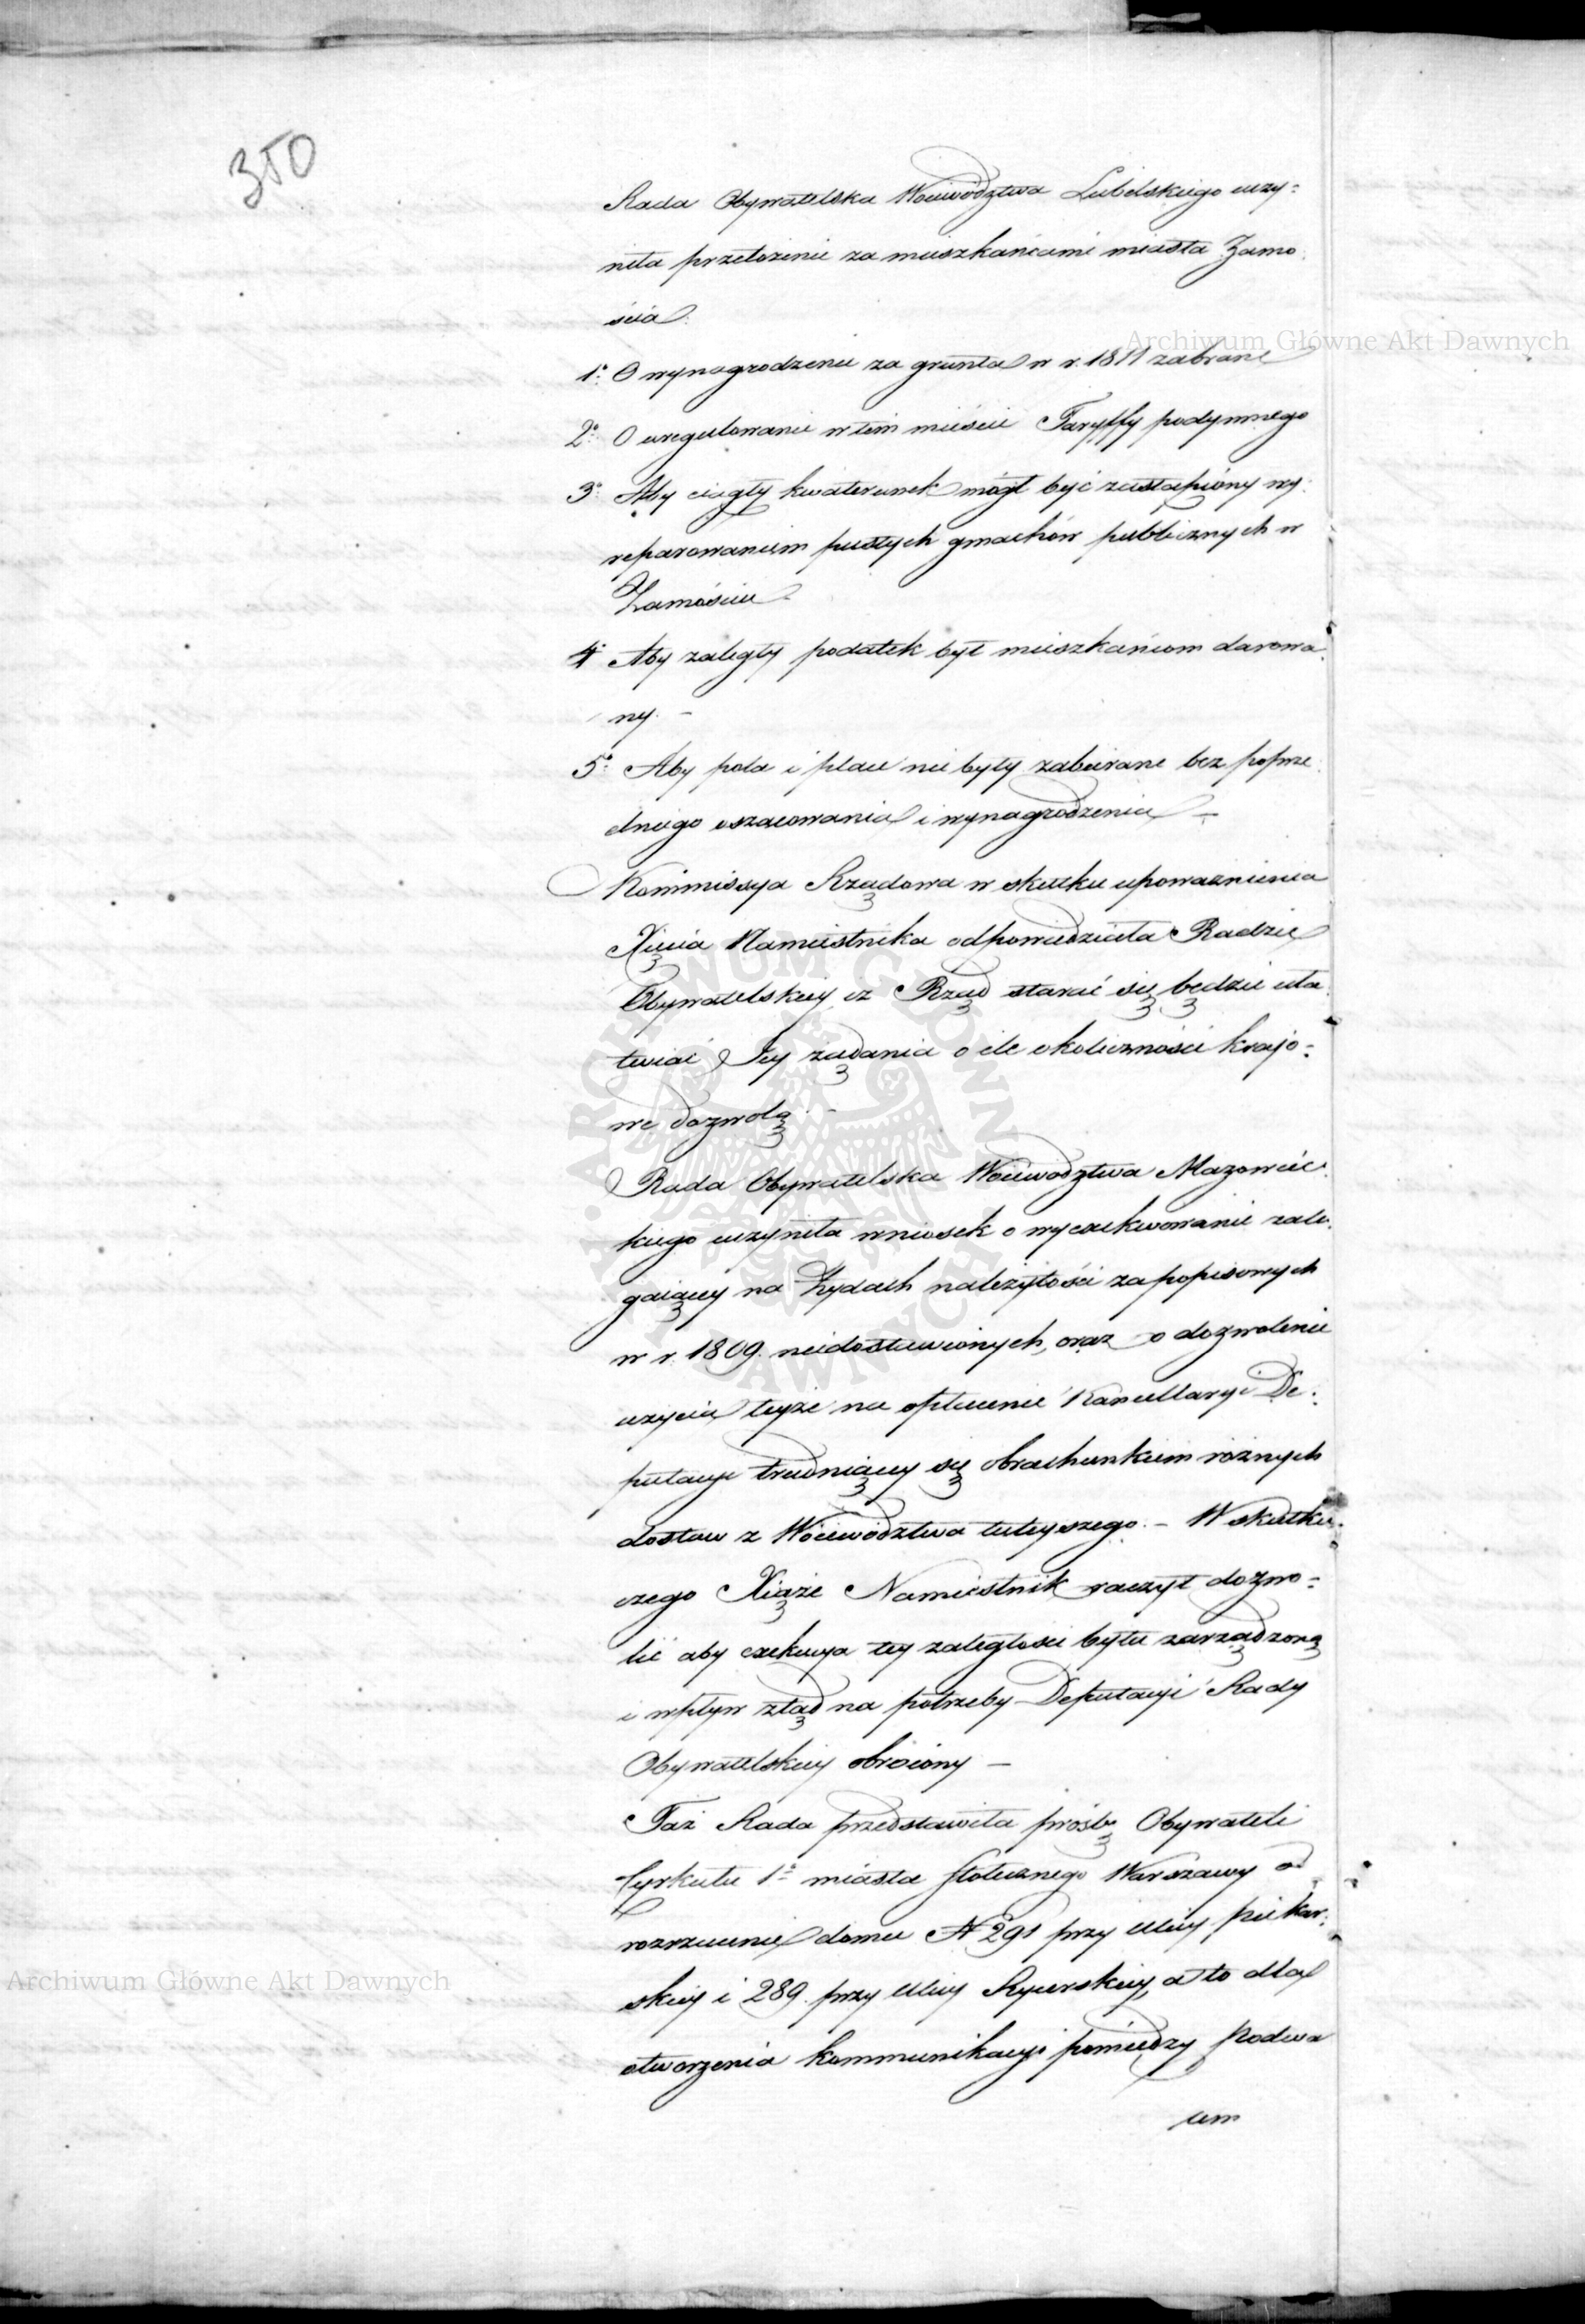 350
Rada Obywatelska Woiewództwa Lubelskiego uczy=
niła przełożenie za mieszkańcami miasta Zamo=
ścia.
1° O wynagrodzenie za grunta w r. 1811 zabrane
2° O uregulowanie w tem mieście Taryffy podymnego
3° Aby ciągły kwaterunek mógł być zastąpiony wy=
reparowaniem pustych gmachów publicznych w
Zamościu
4° Aby zaległy podatek był mieszkańcom darowa=
ny. –
5° Aby pola i place nie były zabierane bez poprze=
dniego oszacowania i wynagrodzenia –
Kommissya Rządowa w skutku upoważnienia
Xięcia Namiestnika odpowiedziała Radzie
Obywatelskiey iż Rząd starać się będzie uła=
twiać Jey żądania o ile okoliczności krajo=
we dozwolą. –
Rada Obywatelska Woiewództwa Mazowiec=
kiego uczyniła wniosek o wyexekwowanie zale=
gaiącey na Żydach należytości za popisowych
w r. 1809. niedostawionych, oraz o dozwolenie
użycia teyże na opłacenie Kancellaryi De=
putacyi trudniącey się obrachunkiem różnych
dostaw z Woiewództwa tuteyszego. – W skutku
czego Xiąże Namiestnik raczył dozwo=
lić aby exekucya tey zaległości była zarządzoną
i wpływ ztąd na potrzeby Deputacyi Rady
Obywatelskiey obrócony –
Taż Rada przedstawiła prośbę Obywateli
Cyrkułu 1° miasta stołecznego Warszawy o
rozrzucenie domu N 291 przy ulicy piekar=
skiey i 289. przy ulicy Rycerskiey, a to dla
otworzenia kommunikacyi pomiedzy Podwa
lem
Archiwum Główne Akt Dawnych
Archiwum Główne Akt Dawnych
ARCHIWUM GŁÓWNE AKT DAWNYCH